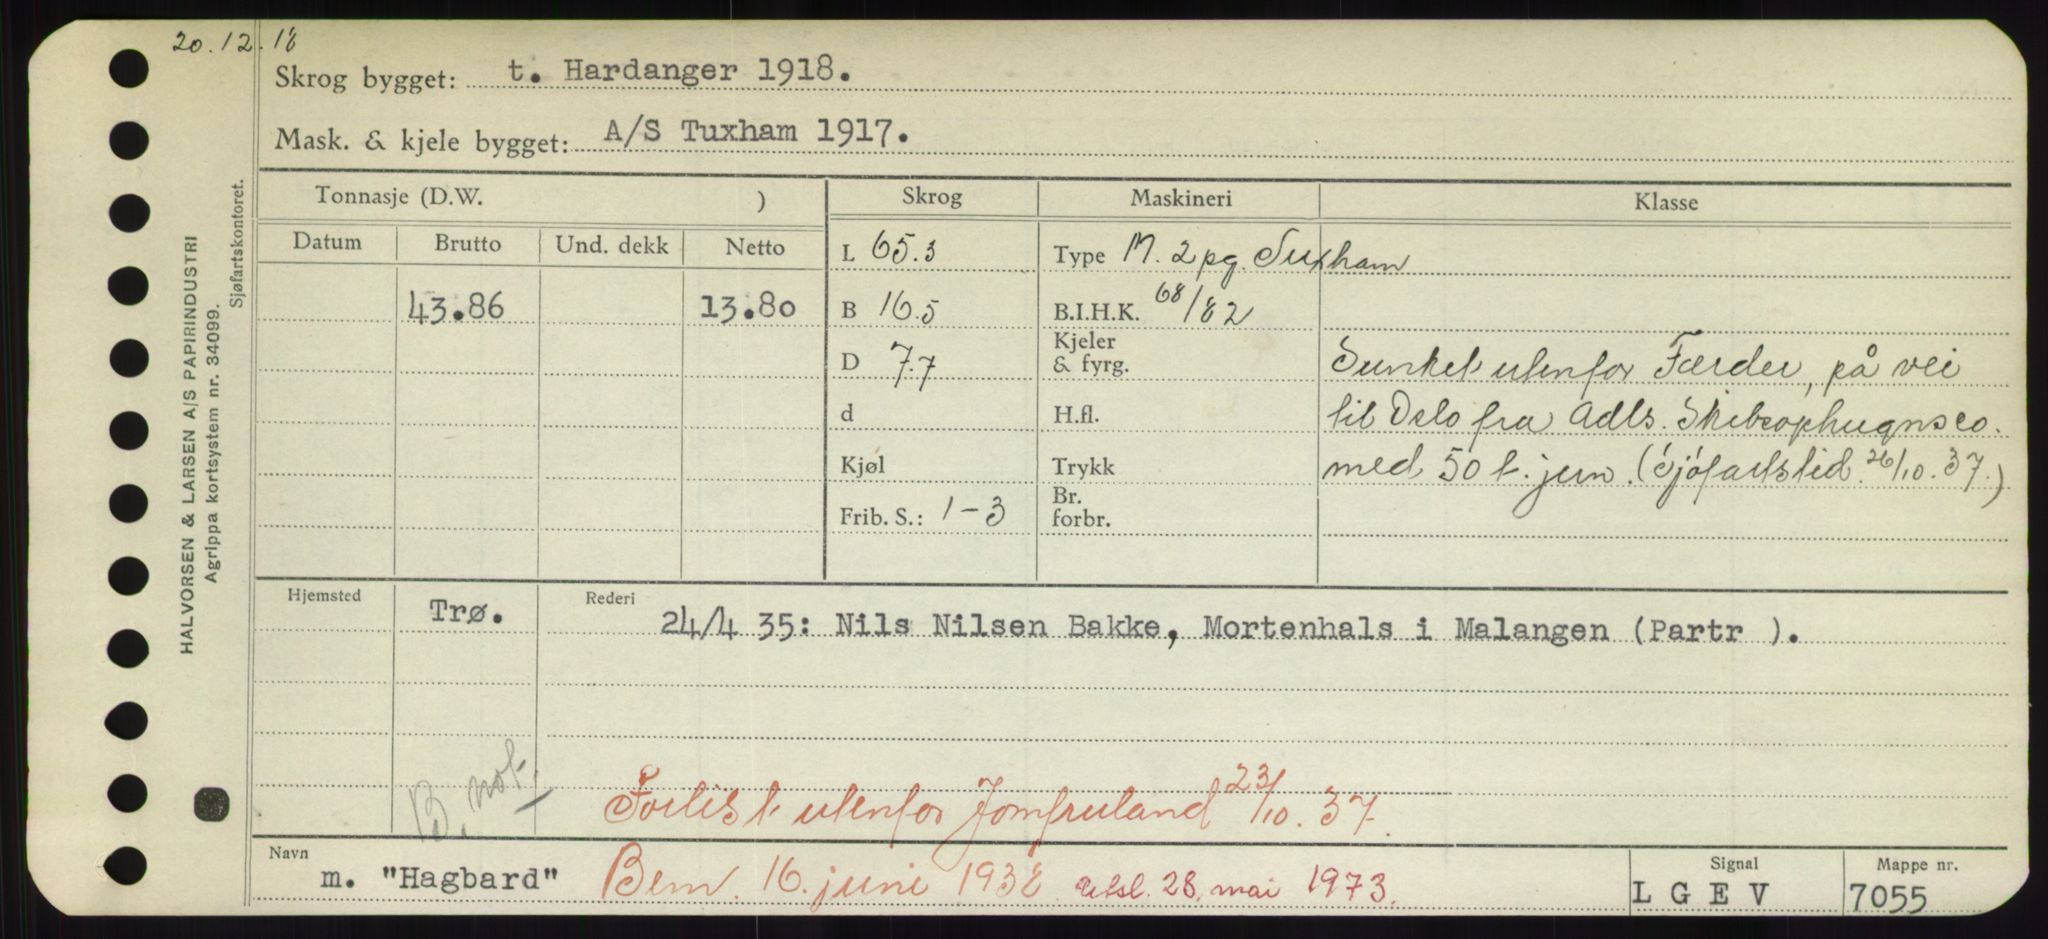 20.12.18
Skrog bygget: t. Hardanger 1918.
Mask. & kjele bygget: A/S Tuxham 1917.
Tonnasje (D.W. ) Skrog Maskineri Klasse
Datum Brutto Und. dekk Netto L 65.3 Type M. 2 pg. Tuxham
43.86 13.80 B 16.5 B.I.H.K. 68/82
D 7.7 Kjeler & fyrg. Sunket utenfor Færder, på vei
d H.fl. til Oslo fra Adls. Skibsophugnsco.
Kjøl Trykk med 50 t. jern. (Sjøfartstid. 26/10.37.)
Frib. S.: 1-3 Br. forbr.
Hjemsted Trø. Rederi 24/4 35: Nils Nilsen Bakke, Mortenhals i Malangen (Partr ).
B. not.
Forlist utenfor Jomfruland 23/10.37.
Navn m. "Hagbard" Bem. 16. juni 1938 utsl. 28. mai 1973.
Signal LGEV
Mappe nr. 7055
HALVORSEN & LARSEN A/S PAPIRINDUSTRI
Agrippa kortsystem nr. 34099.
Sjøfartskontoret.